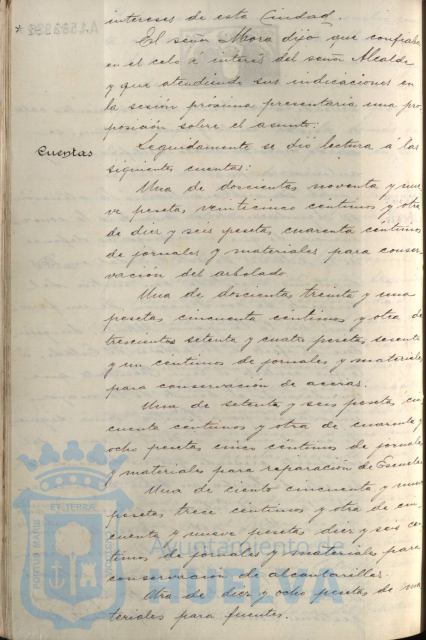 intereses de esta Ciudad.
El señor Mora dijo que confiaba
en el celo é interés del señor Alcalde
y que atendiendo sus indicaciones en
la sesión próxima presentaria una pro
posición sobre el asunto.
Cuentas
Seguidamente se dió lectura á las
siguientes cuentas:
Una de doscientas noventa y nue
ve pesetas veinticinco céntimos y otra
de diez y seis pesetas cuarenta céntimos
de jornales y materiales para conser
vación del arbolado
Una de doscientas treinta y una
pesetas cincuenta céntimos y otra de
trescientas setenta y cuatro pesetas sesenta
y un céntimos de jornales y materiales
para conservación de aceras.
Una de setenta y seis pesetas cin
cuenta céntimos y otra de cuarenta y
ocho pesetas cinco céntimos de jornales
y materiales para reparación de Escuelas
Una de ciento cincuenta y una
pesetas trece céntimos y otra de cin
cuenta y nueve pesetas diez y seis cén
timos de jornales y materiales para
conservación de alcantarillas.
Otra de diez y ocho pesetas de ma
teriales para fuentes.
Ayuntamiento de
HUELVA
ET TERRÆ
PORTUS MARIS
CUSTODIA